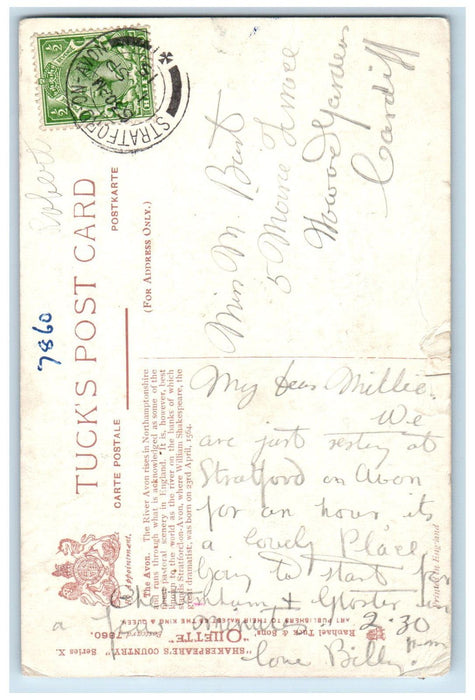 TUCK'S POST CARD
CARTE POSTALE
POSTKARTE
(FOR ADDRESS ONLY.)
STRATFORD-ON-AVON
½ ½
7860
Miss M. Bant
5
Cardiff
The Avon. The River Avon rises in Northamptonshire
and runs through what is acknowledged as some of the
best pastoral scenery in England. It is, however, best
known to the world as the river on the banks of which
stands Stratford-on-Avon, where William Shakespeare, the
great dramatist, was born on 23rd April, 1564.
My dear Millie.
We
are just resting at
Stratford on Avon
for an hour its
a lovely Place.
Going to start for
Cheltenham & Gloster in
a few minutes 2.30
love Billy.
Appointment,
Raphael Tuck & Sons'
"OILETTE"
Postcard 7860.
"SHAKESPEARE'S COUNTRY" Series X.
ART PUBLISHERS TO THEIR MAJESTIES THE KING & QUEEN
Printed in England